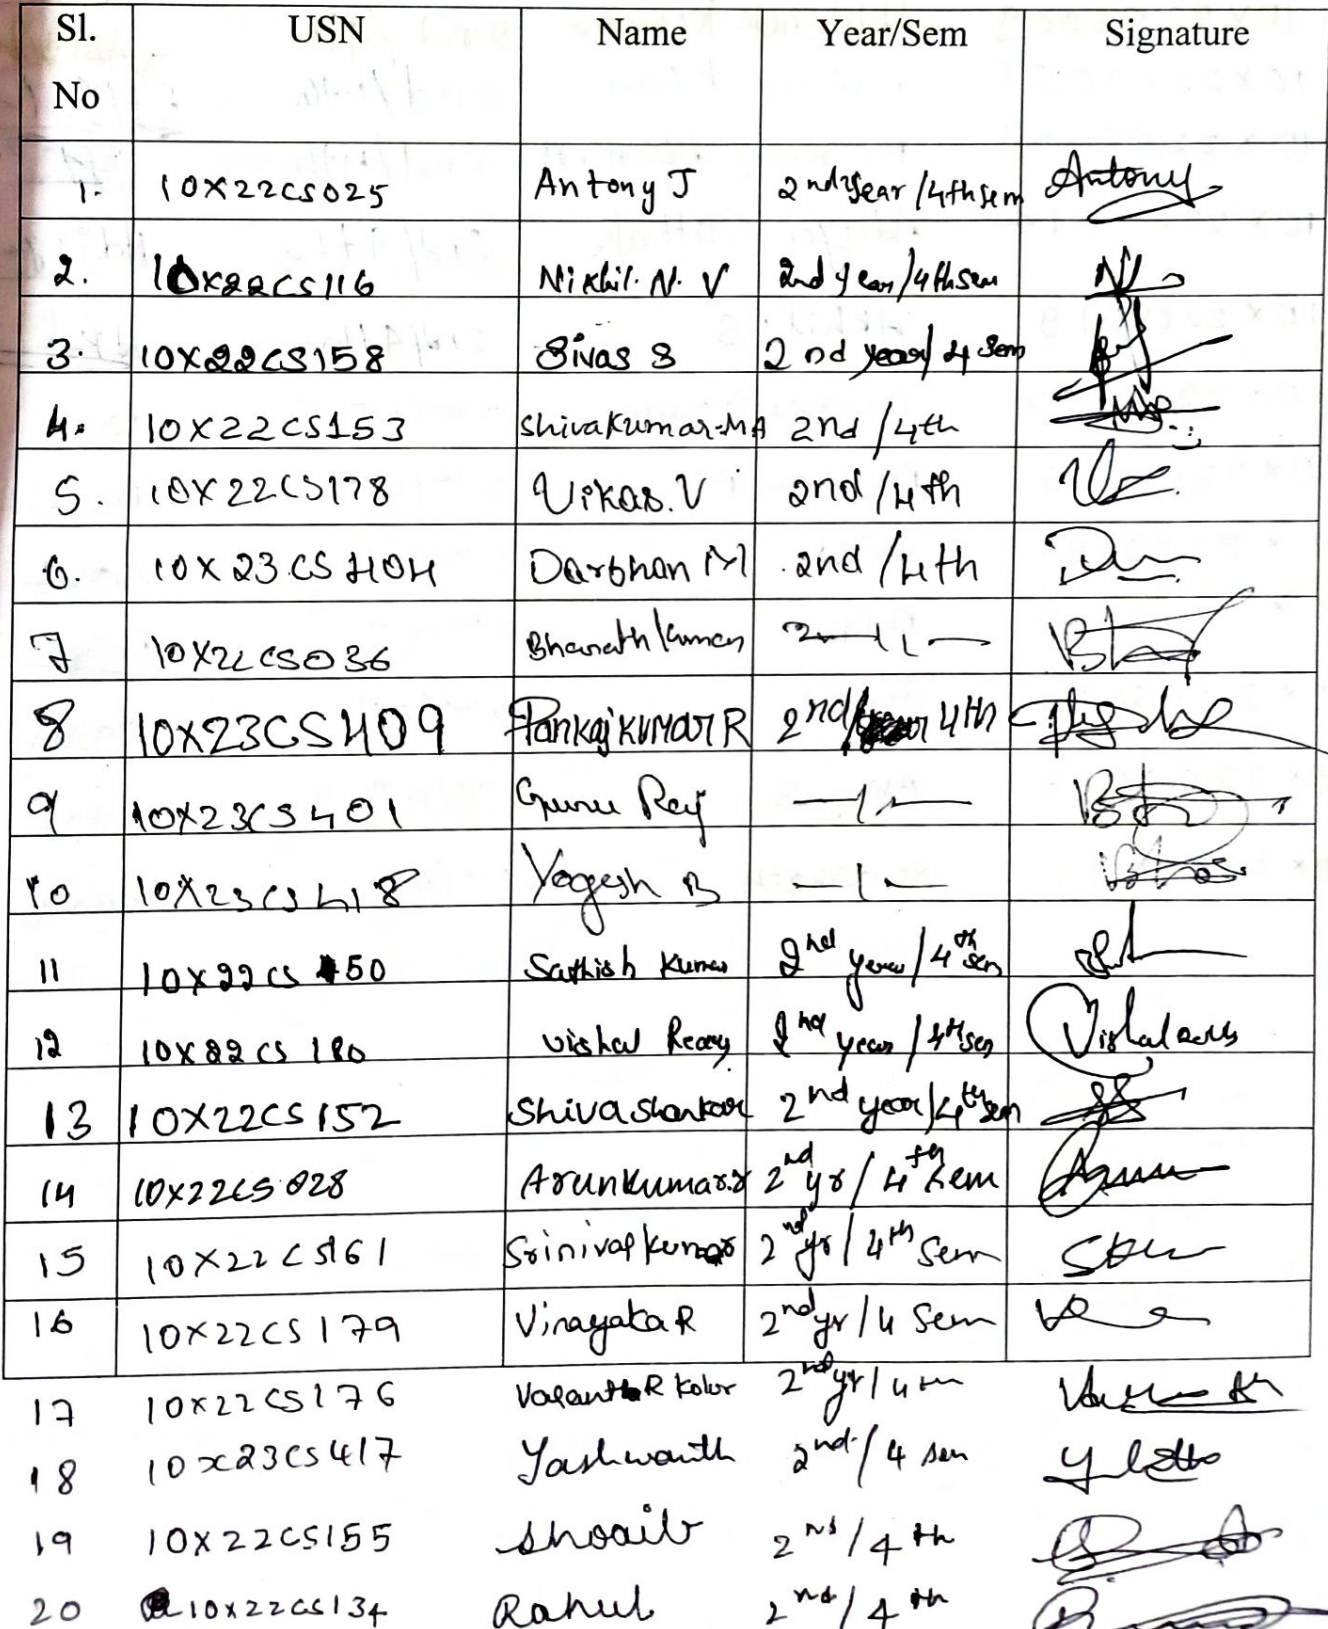 Sl. No USN Name Year/Sem Signature
1. 10X22CS025 Antony J 2nd year/4th sem Antony
2. 10X22CS116 Nikhil. N. V 2nd year/4th sem
3. 10X22CS158 Sivas S 2nd year/4 Sem
4. 10X22CS153 Shivakumar.MA 2nd/4th
5. 10X22CS178 Vikas.V 2nd/4th
6. 10X23CS404 Darshan M 2nd/4th
7 10X22CS036 Bharath Kumar
8 10X23CS409 Pankaj KUMAR R 2nd/4th
9 10X23CS401 Guru Raj
10 10X23CS418 Yogesh B
11 10X22CS 150 Sathish Kumar 2nd year/4th sem
12 10X22CS 180 Vishal Reddy 2nd year/4th sem
13 10X22CS152 Shivashankar 2nd year/4th sem
14 10X22CS028 Arunkumar.r 2nd yr/4th sem
15 10X22CS161 Srinivas kumar 2nd yr/4th Sem
16 10X22CS179 Vinayaka R 2nd yr/4 Sem
17 10X22CS176 Vasanth R Kolur 2nd yr/4th
18 10x23CS417 Yashwanth 2nd/4 sem
19 10X22CS155 Shoaib 2nd/4th
20 10X22CS134 Rahul 2nd/4th